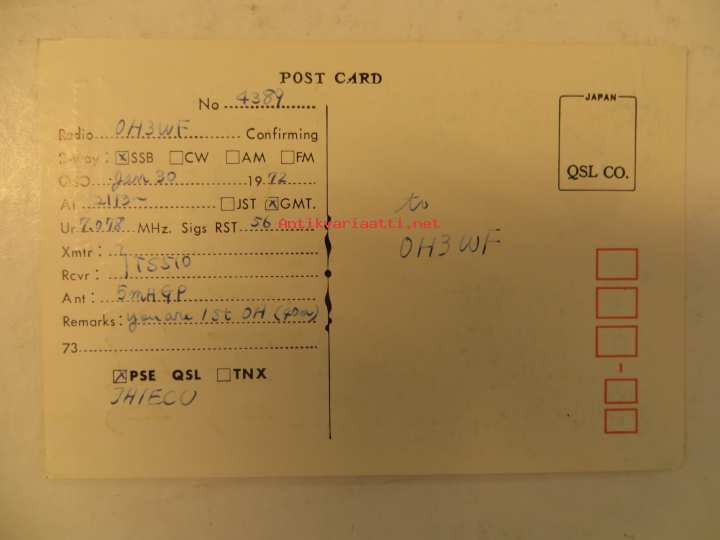 POST CARD
No 4389
Radio OH3WF Confirming
2-way: ☒SSB ☐CW ☐AM ☐FM
QSO Jan 30 1972
At 2113~ ☐JST ☒GMT.
Ur 7.078 MHz. Sigs RST 56
Xmtr:
Rcvr: TS510
Ant: 5mH GP
Remarks: you are 1st OH (40m)
73
☒PSE QSL ☐TNX
JAPAN
QSL CO.
to
OH3WF
Antikvariaatti.net